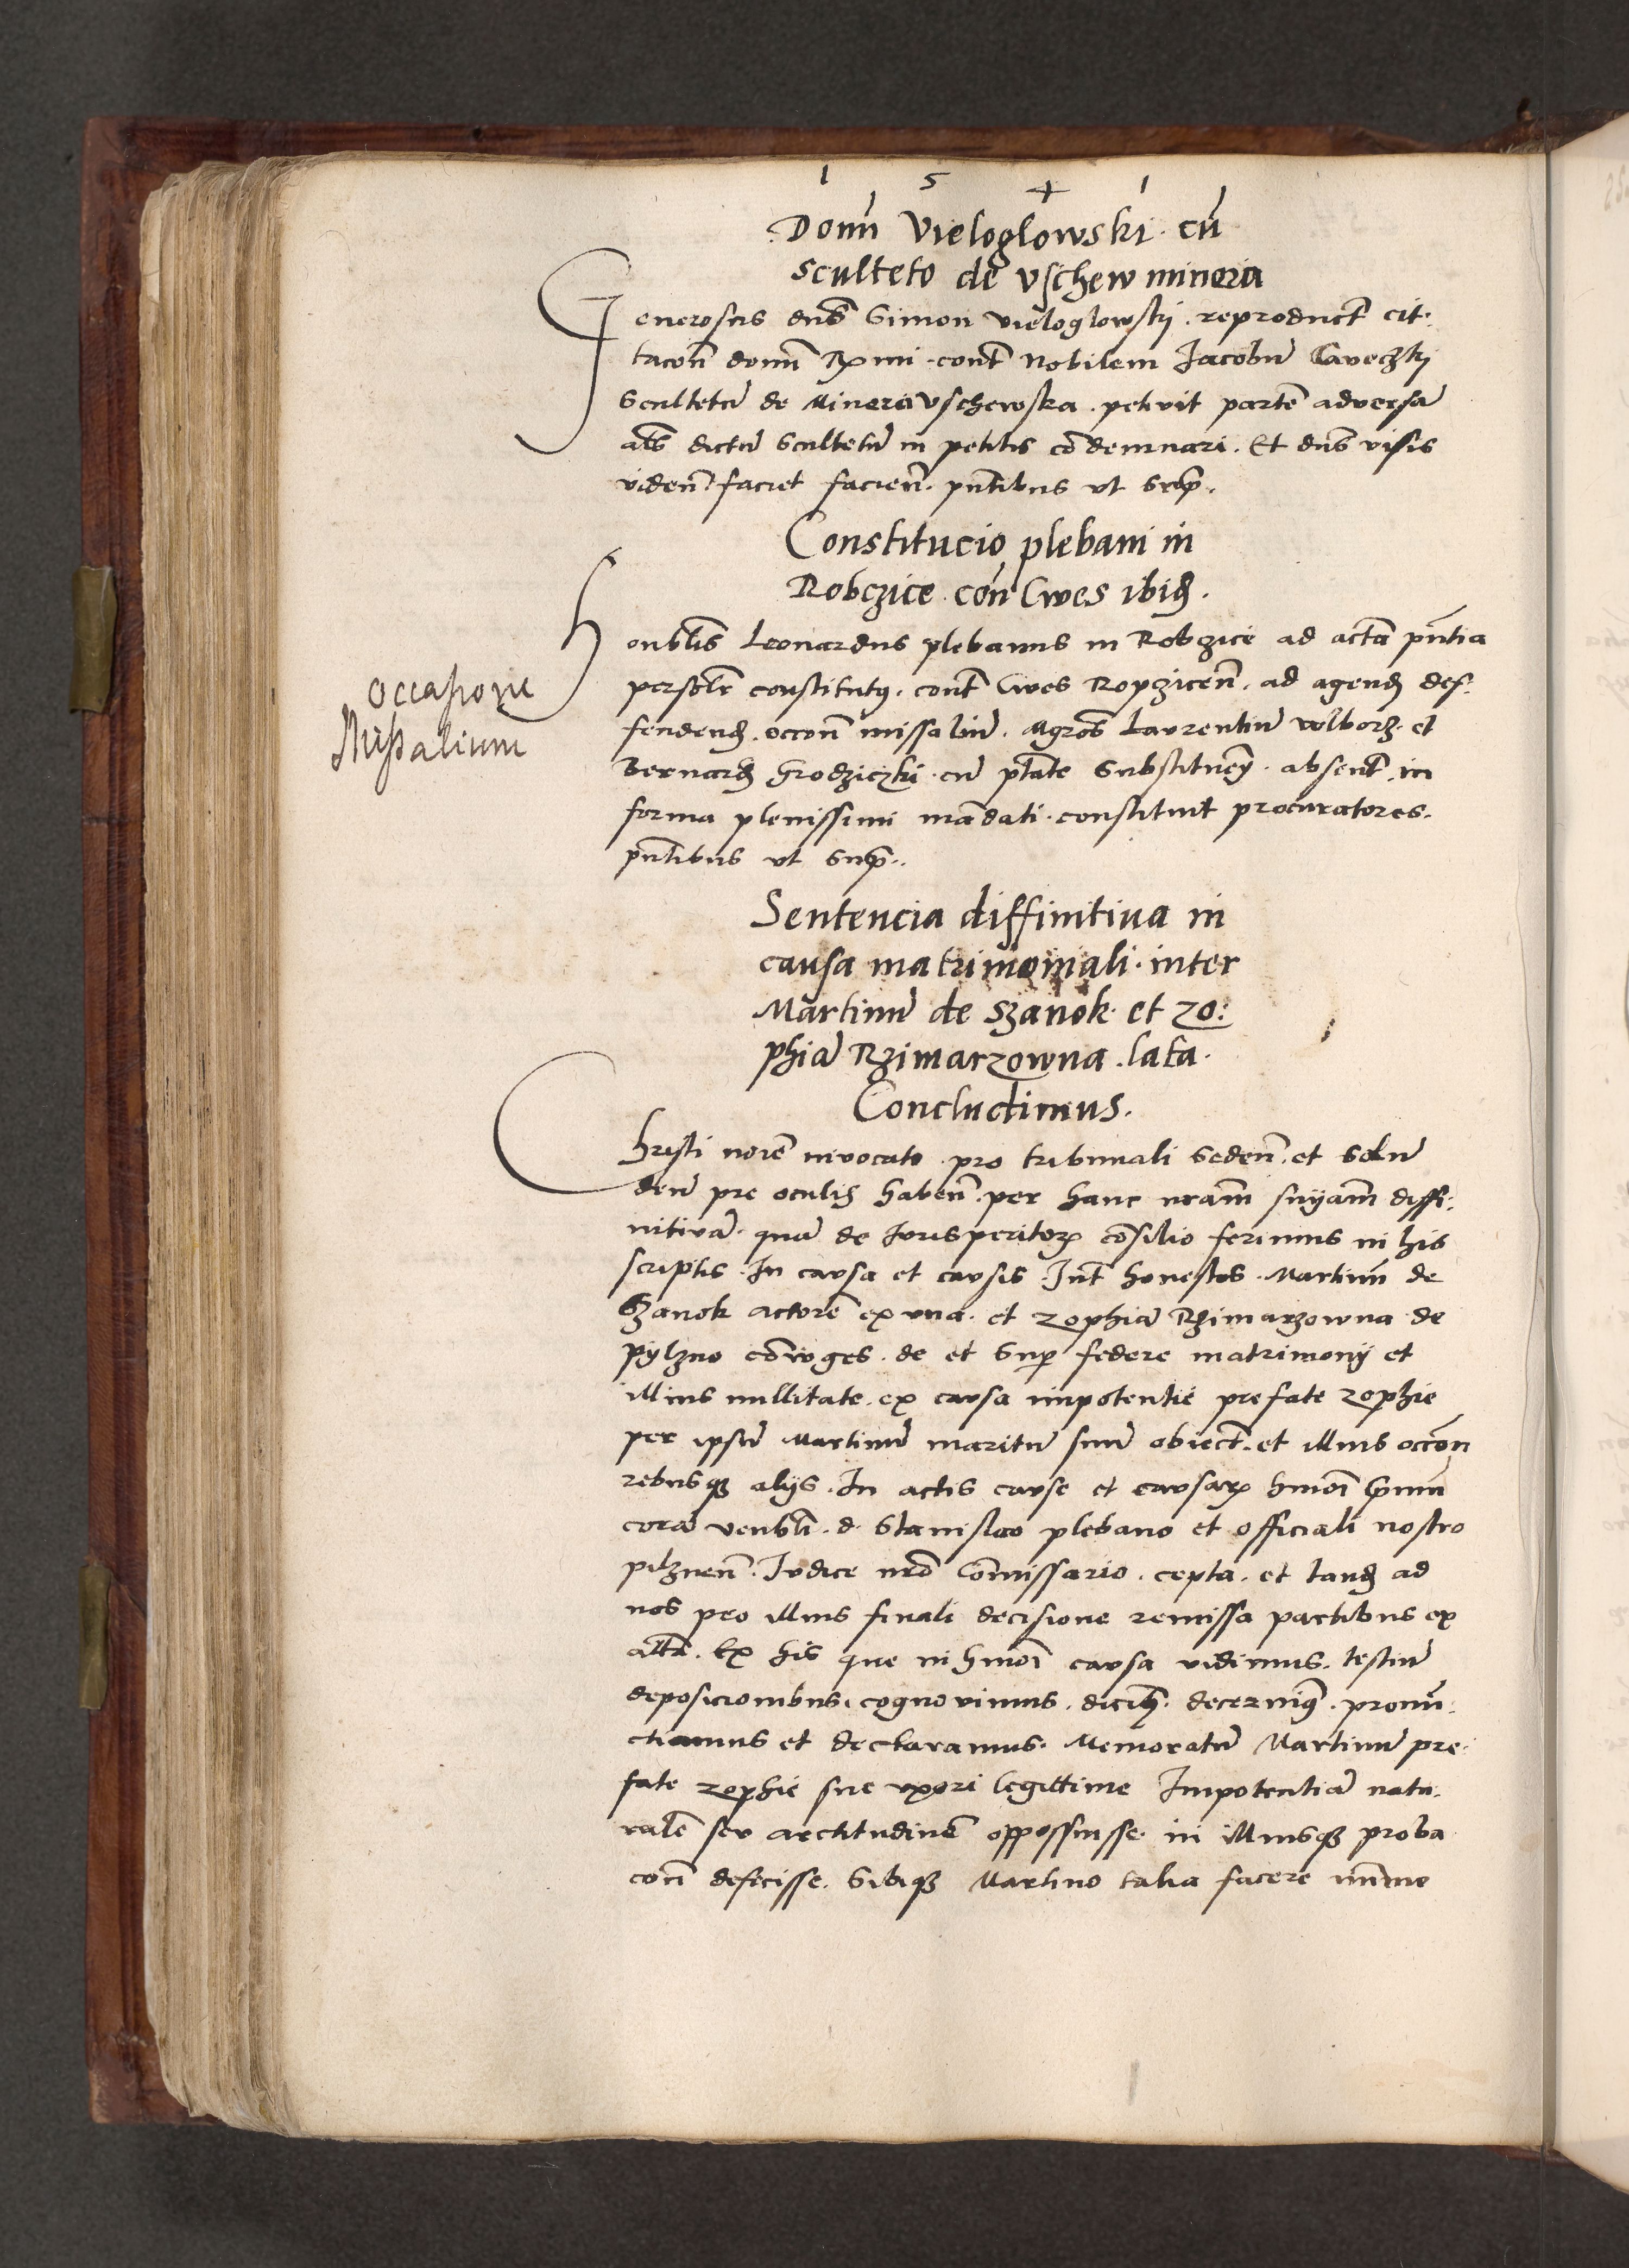 1 5 4 1
Domĩ Vieloglowski cũ
sculteto de vschew minori
Generosus dñs Simon vieloglowski reproduct cit.
tacoñ domĩ Rxmi cont Nobilem Jacobũ
Scultetũ de Minori vschewska petivit partẽ adversã
als dictũ scultetũ in petitis cõdemnari. Et dñs visis
videñ faciet facieñ pñtibus vt supra.
Constitucio plebani in
Robczice coñ Cives ibidẽ.
Honblis Leonardus plebanus in Robczice ad acta pñtia
persolr constitutus cont Cives Ropcziceñ. ad agendũ def.
fendendũ occoñ missaliũ. Mgros Laurentiũ wolborz et
Bernardũ Grodziczki cũ ptate substituendi absent in
forma plenissimi mãdati constituit procuratores.
pñtibus vt supra.
Occasione
Missalium
Sentencia diffinitiua in
causa matrimoniali inter
Martinũ de Szanok et zo:
phiã Rzimarzowna lata.
Concludimus.
Christi noĩe invocato pro tribunali sedeñ et solũ
deũ pre oculis habeñ per hanc nrãm snỹam diffi:
nitivã quã de Jurisperitorũ cõsilio ferimus in his
scriptis. In causa et causis Int honestos Martinũ de
Szanok actorẽ ex vna et zophiã Rzimarzowna de
pylzno cõiuges de et sup federe matrimonij et
illius nullitate ex causa impotentie prefate zophie
per ipsũ Martinũ maritũ suũ obiect. et illius occoñ
rebusque alijs. In actis cause et causarũ hmõi primũ
corã venbli d. Stanislao plebano et officiali nostro
pilzneñ. Judice nrõ Commissario cepta et tandẽ ad
nos pro illius finali decisione remissa partibus ex
altera. Ex his que in hmõi causa vidimus testiũ
deposicionibus cognovimus dicimus decernimus pronũ:
ctiamus et declaramus. Memoratũ Martinũ pre:
fate zophie sue vxori legittime Impotentiã natu:
ralẽ seu arctitudinẽ opposuisse in illiusque proba
coñ defecisse. Sibique Martino talia facere minime